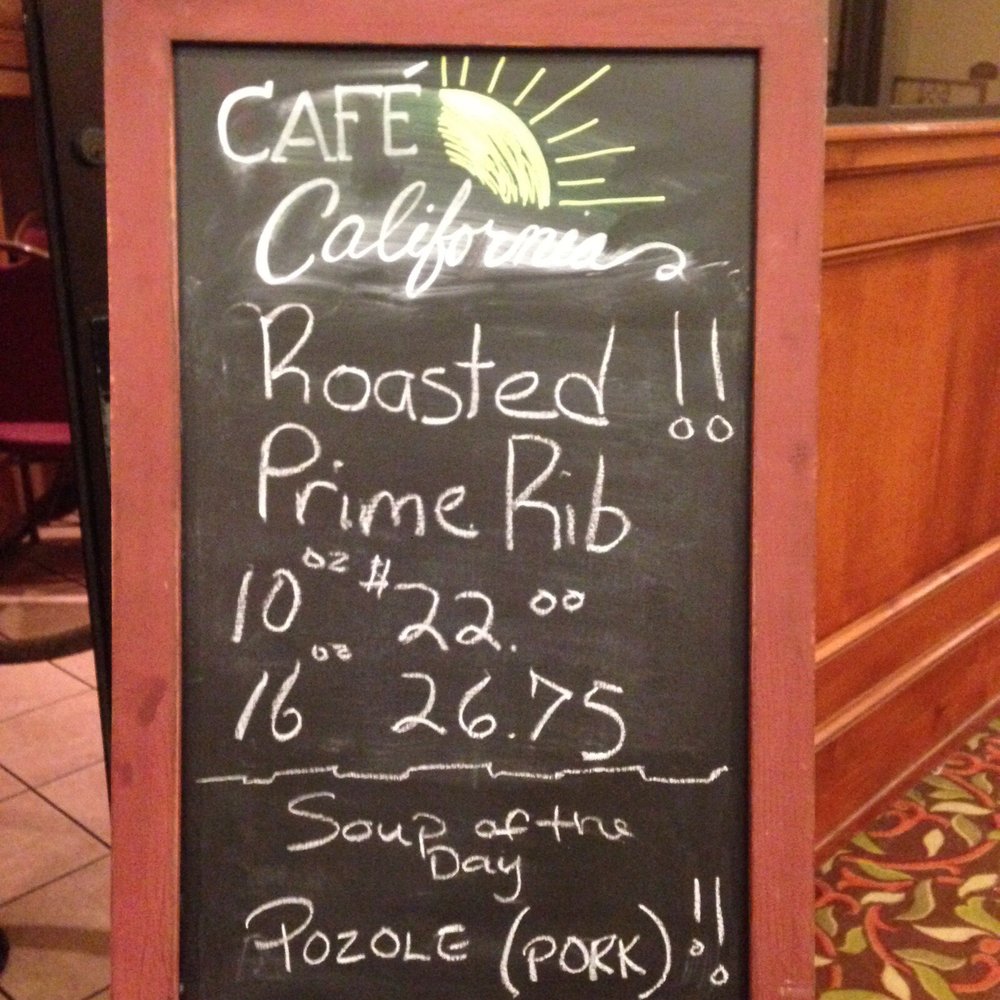 CAFÉ
California
Roasted !!
Prime Rib
10 oz $22.00
16 oz 26.75
Soup of the
Day
POZOLE (PORK) !!